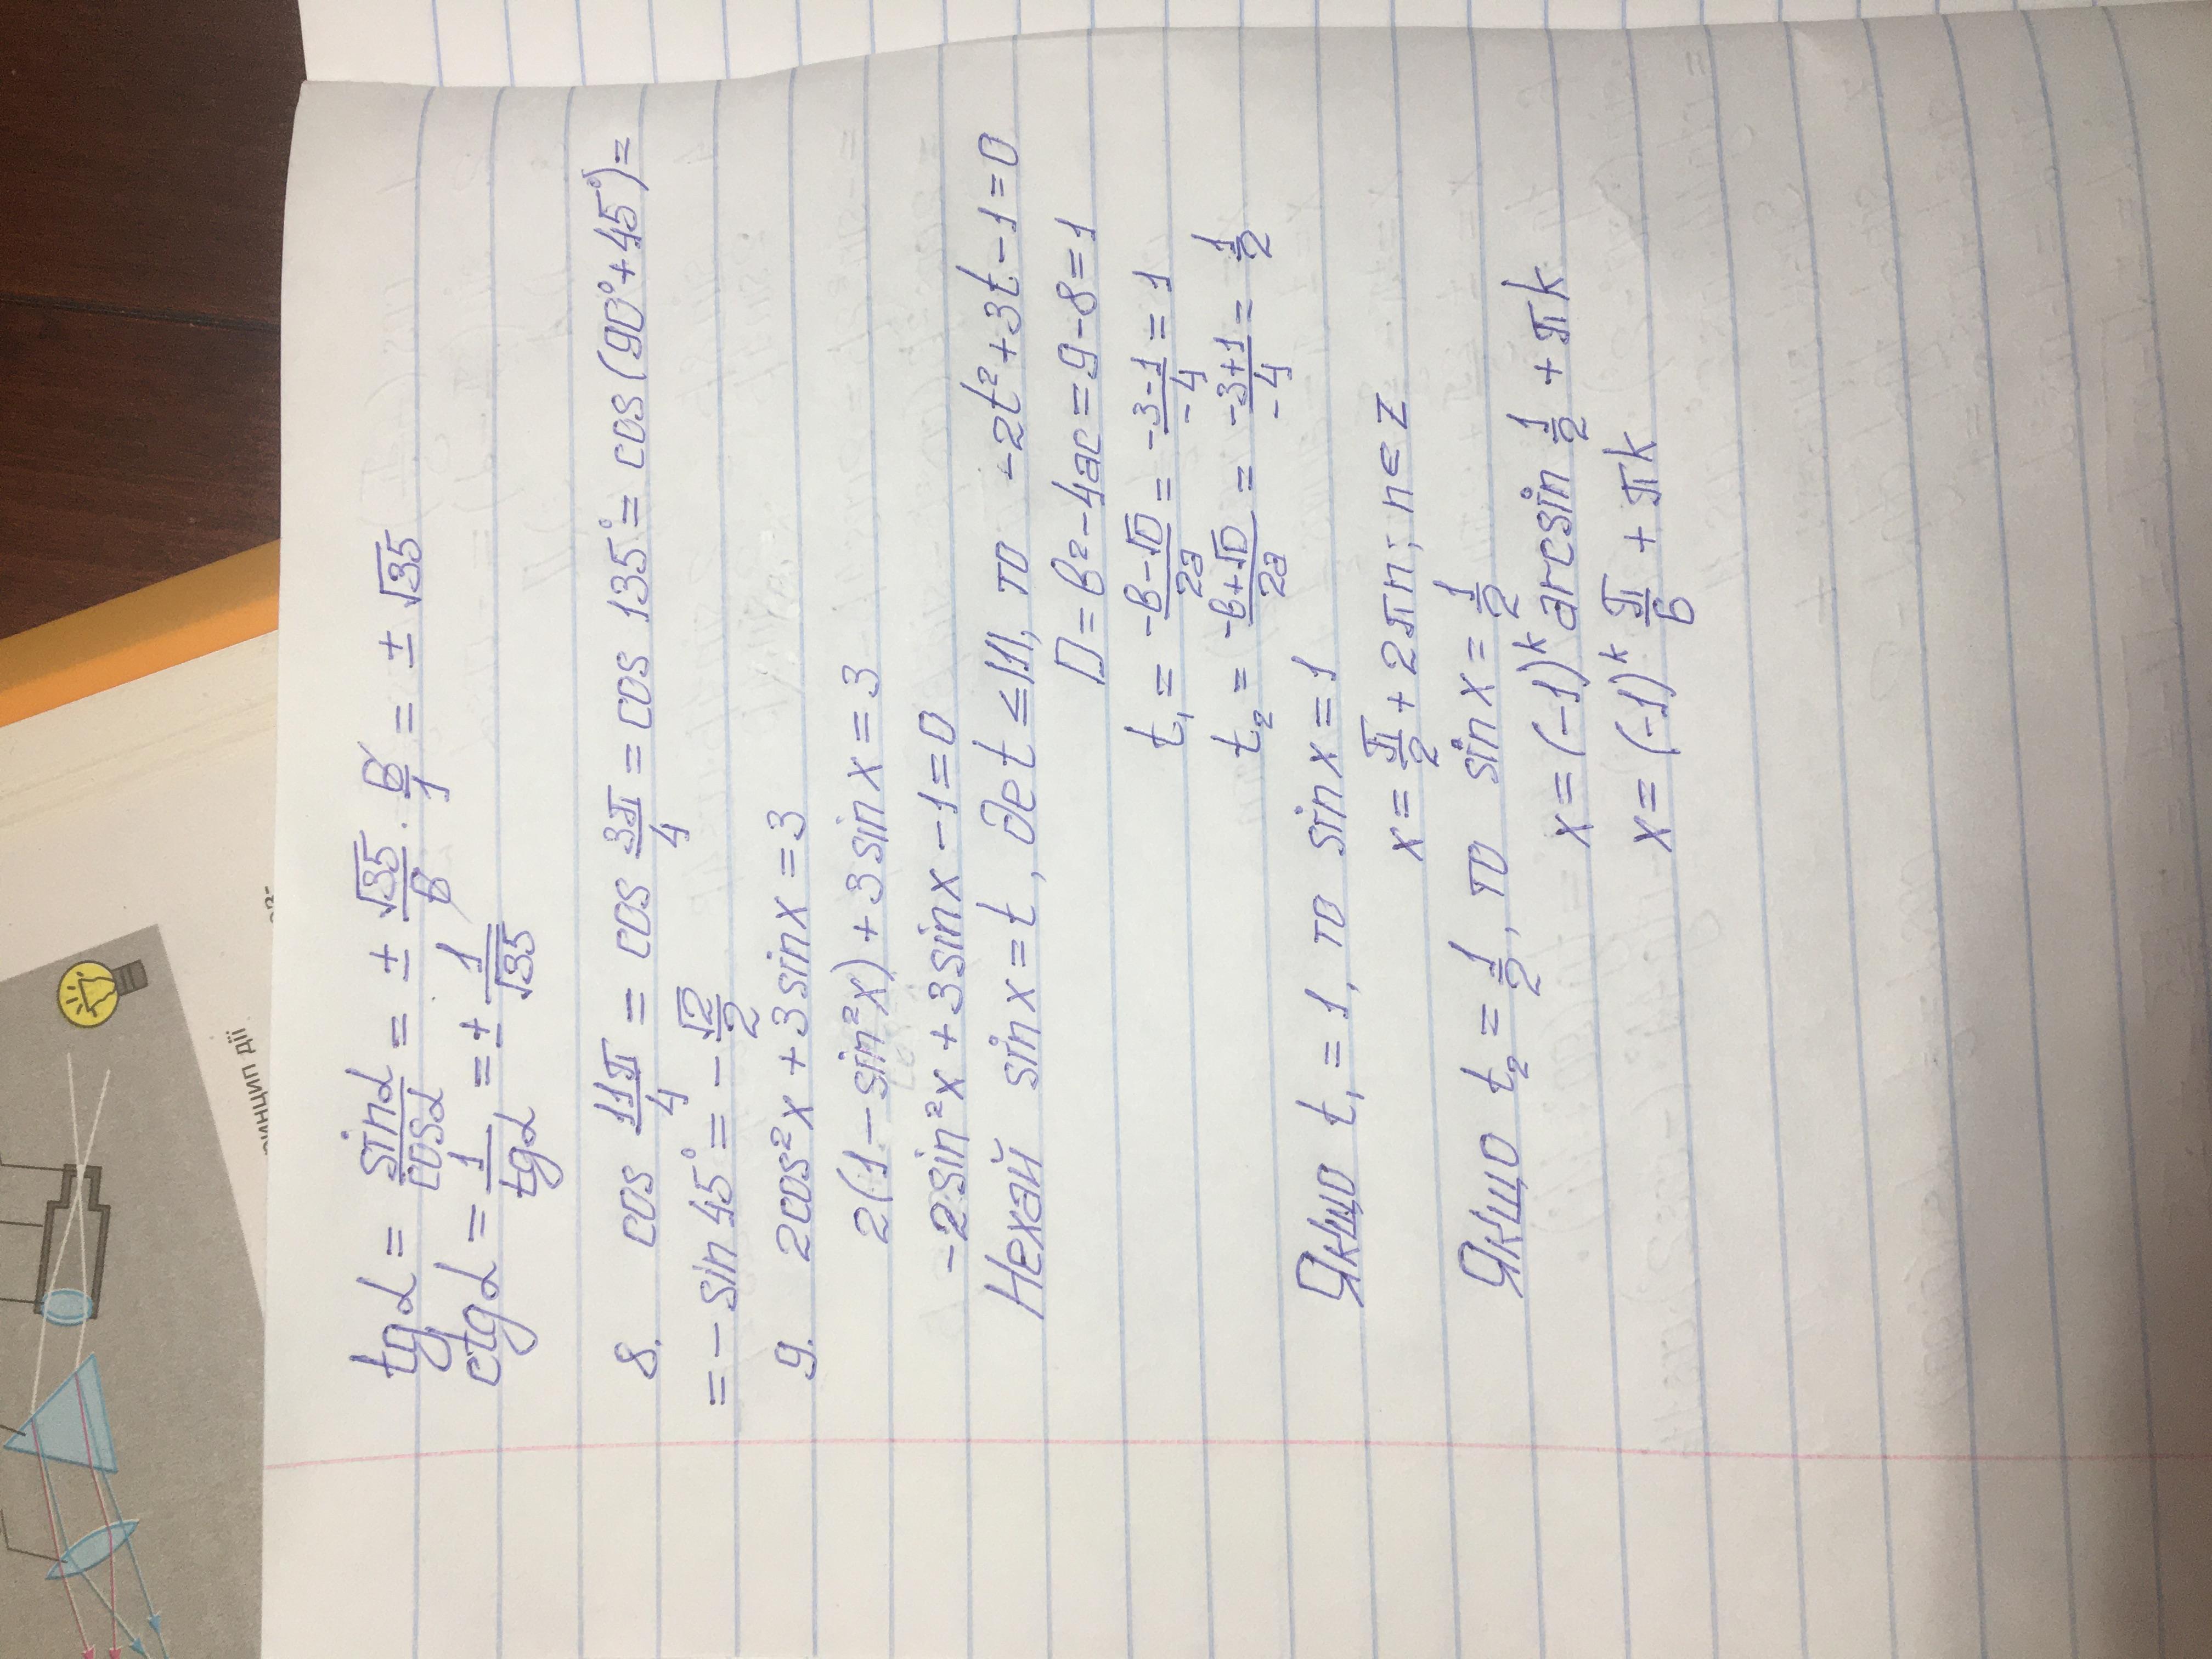 tgα = sinα/cosα = ± √35/6 · 6/1 = ± √35
ctgα = 1/tgα = ± 1/√35
8. cos 11π/4 = cos 3π/4 = cos 135° = cos (90° + 45°) =
= - sin 45° = - √2/2
9. 2cos²x + 3sinx = 3
2(1 - sin²x) + 3sinx = 3
-2sin²x + 3sinx - 1 = 0
Нехай sinx = t, де t ≤ |1|, то -2t² + 3t - 1 = 0
D = в² - 4ac = 9 - 8 = 1
t₁ = -в-√D/2a = -3-1/-4 = 1
t₂ = -в+√D/2a = -3+1/-4 = 1/2
Якщо t₁ = 1, то sinx = 1
x = π/2 + 2πn; n ∈ Z
Якщо t₂ = 1/2, то sinx = 1/2
x = (-1)ᵏ arcsin 1/2 + πk
x = (-1)ᵏ π/6 + πk
ринцип дії